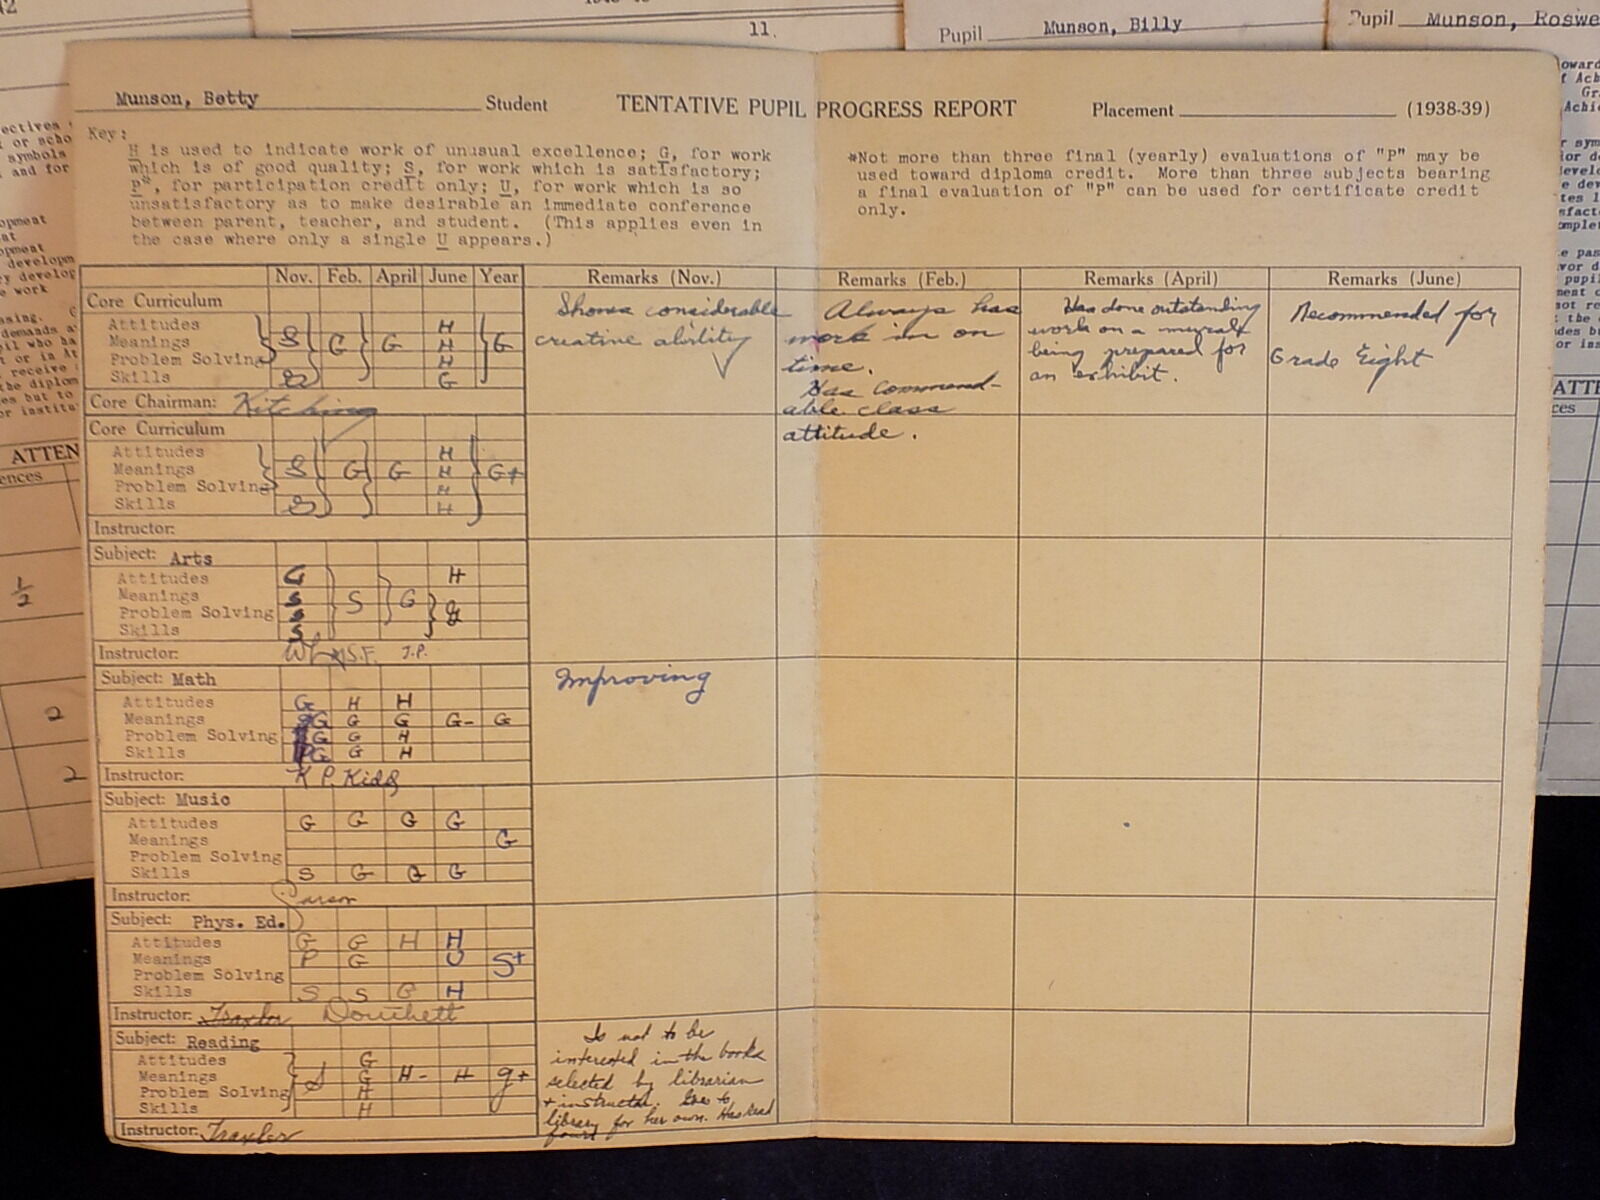 11.
Pupil Munson, Billy
Pupil Munson, Roswe
Munson, Betty Student TENTATIVE PUPIL PROGRESS REPORT Placement (1938-39)
Key:
H is used to indicate work of unusual excellence; G, for work
which is of good quality; S, for work which is satisfactory;
P*, for participation credit only; U, for work which is so
unsatisfactory as to make desirable an immediate conference
between parent, teacher, and student. (This applies even in
the case where only a single U appears.)
*Not more than three final (yearly) evaluations of "P" may be
used toward diploma credit. More than three subjects bearing
a final evaluation of "P" can be used for certificate credit
only.
Nov. Feb. April June Year Remarks (Nov.) Remarks (Feb.) Remarks (April) Remarks (June)
Core Curriculum
Attitudes H
Meanings S G G H G
Problem Solving H
Skills G
Core Chairman: Kitching
Shows considerable
creative ability
Always has
work in on
time.
Has commend-
able class
attitude.
Has done outstanding
work on a mural
being prepared for
an exhibit.
Recommended for
Grade Eight
Core Curriculum
Attitudes H
Meanings S G G H G+
Problem Solving H
Skills H
Instructor:
Subject: Arts
Attitudes G H
Meanings S S G
Problem Solving S G
Skills S
Instructor: S.F. J.P.
Subject: Math
Attitudes G H H
Meanings G G G G- G
Problem Solving G G H
Skills G G H
Instructor: K P. Kidd
Improving
Subject: Music
Attitudes G G G G
Meanings G
Problem Solving
Skills S G G G
Instructor: Carson
Subject: Phys. Ed.
Attitudes G G H H
Meanings P G U S+
Problem Solving
Skills S S G H
Instructor: Traxler Douthett
Subject: Reading
Attitudes G
Meanings S G H- H G+
Problem Solving H
Skills H
Instructor: Traxler
Is not to be
interested in the books
selected by librarian
+ instructor. Goes to
library for her own. Has read
four
ATTEN
ences
1/2
2
2